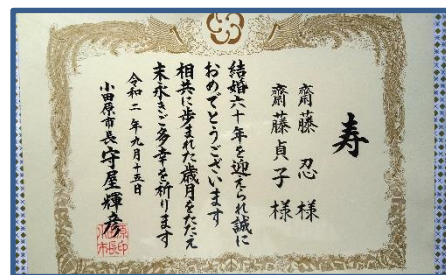 寿
齋藤 忍 様
齋藤貞子 様
結婚六十年を迎えられ誠に
おめでとうございます
相共に歩まれた歳月をたたえ
末永きご多幸を祈ります
令和二年九月十五日
小田原市長 守屋輝彦